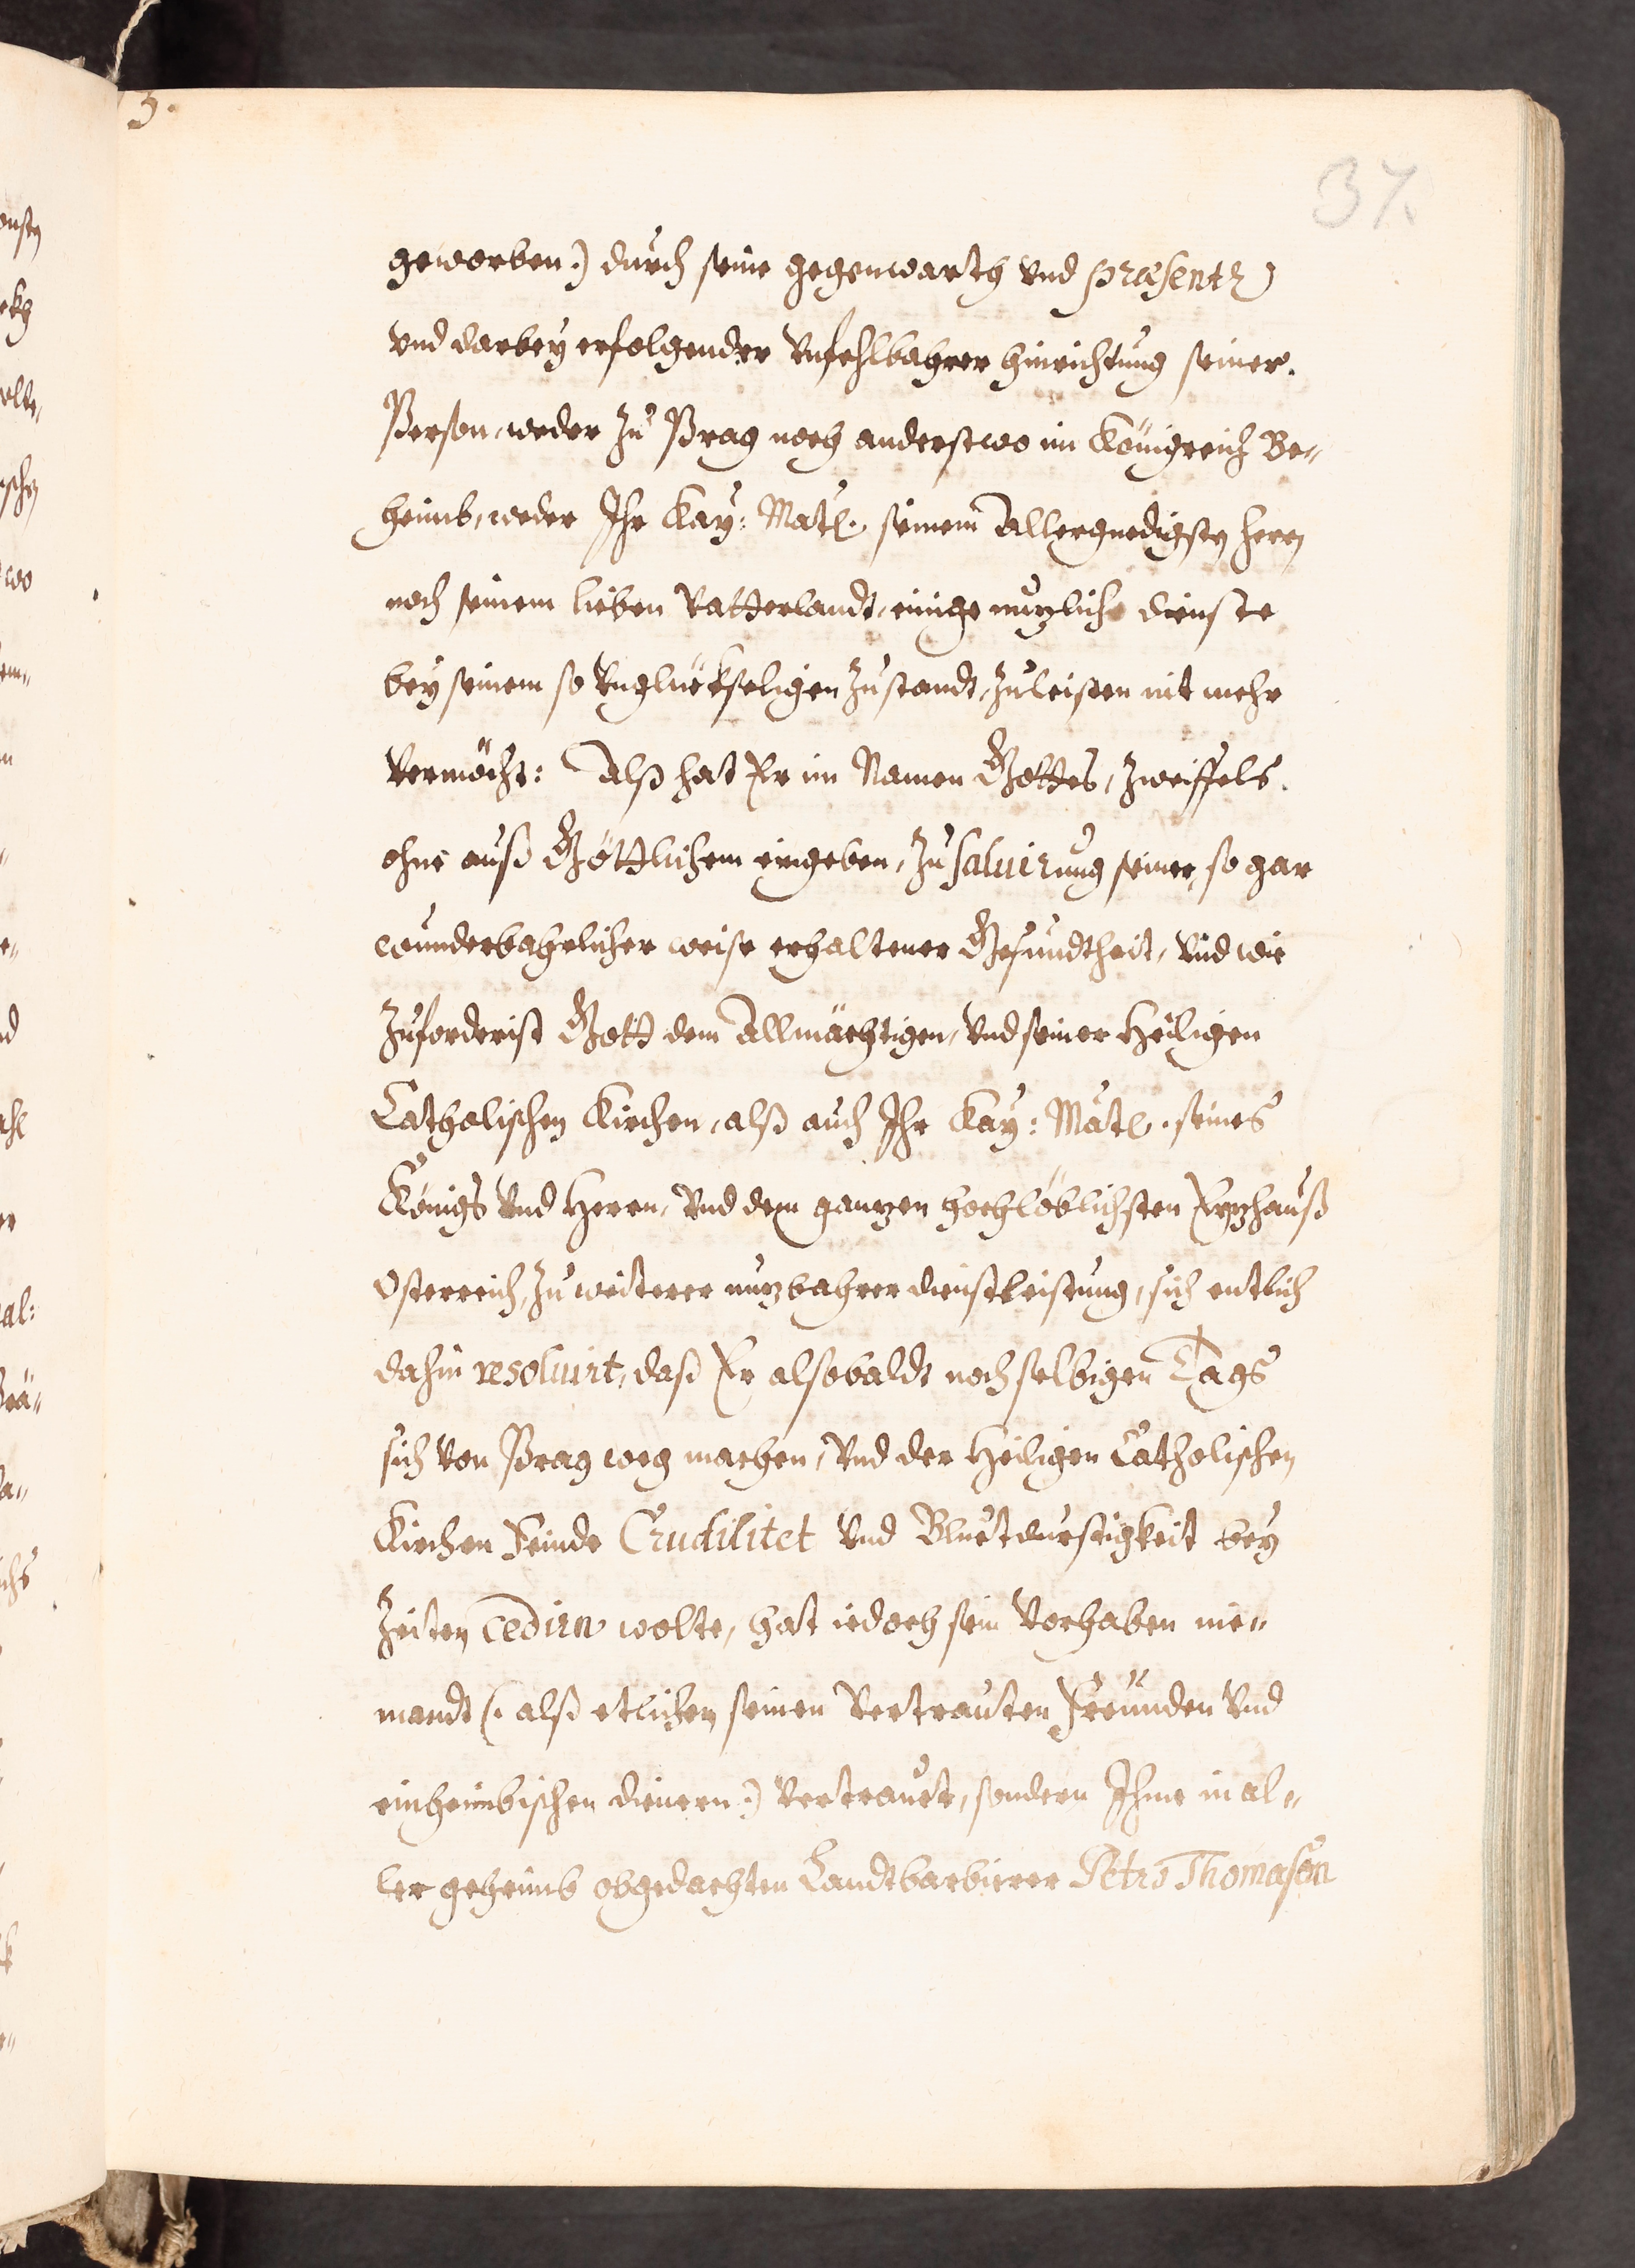 37.
geworben.) durch seine gegenwarth vnd præsentz
vnd darbey erfolgender vnfehlbahrer hinrichtung seiner
Person, weder zu Prag noch anderstwo im Königreich Be„
heimb, weder Ihr Kay: Matl. seinem Allergnedigsten herrn
noch seinem lieben Vatterlandt, einige nuzliche dienste
bey seinem so vnglückseligen Zustandt, zuleisten nit mehr
vermöcht: Alß hat Er im Namen Gottes, zweiffels
ohne auß Göttlichem eingeben, zu saluirung seiner, so gar
wunderbahrlicher weise erhaltener Gesundtheit, vnd wie
zuforderist Gott dem Allmächtigen, vnd seiner Heiligen
Catholischen Kirchen, alß auch Ihr Kay: Matl. seines
Königs vnd Herrn, vnd dem ganzen hochlöblichsten Erzhauß
Osterreich, zu weiterer nuzbahrer dienstleistung, sich entlich
dahin resoluirt, daß Er alsobaldt noch selbigen Tags
sich von Prag weg machen, vnd der Heiligen Catholischen
Kirchen Feinde Crudilitet vnd Bluetdurstigkeit bey
Zeiten cedirn wolte, hat iedoch sein vorhaben nie„
mandt (. alß etlichen seinen vertrauten Freünden vnd
einheimbischen dienern.) vertrauet, sondern Ihme in al„
ler geheimb obgedachten Landtbarbierer Petro Thomason